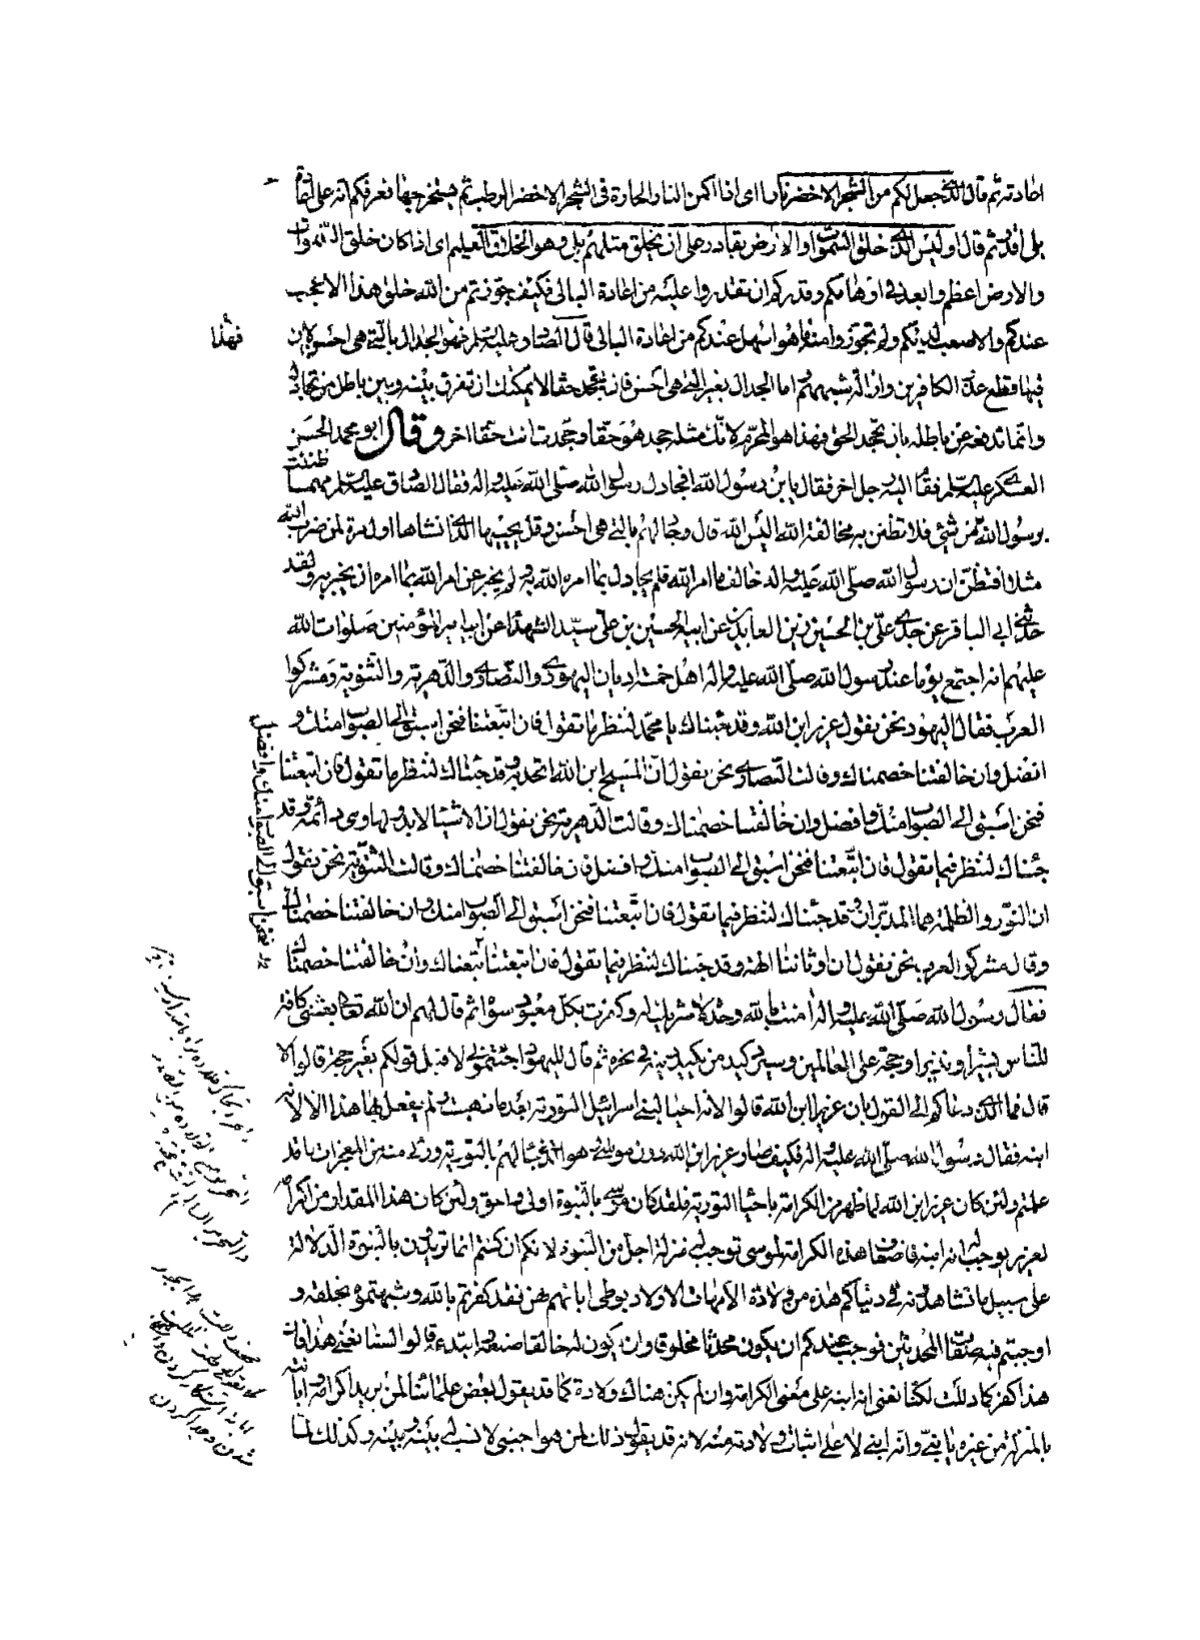 اعادته ثم قال الذى جعل لكم من الشجر الاخضر نارا اى اذا اكمن النار الحارة فى الشجر الاخضر الرطب ثم يستخرجها فعرفكم انه على اعادة
بلى اقدر ثم قال اوليس الذى خلق السموات والارض بقادر على ان يخلق مثلهم بلى وهو الخلاق العليم اى اذا كان خلق السموات
والارض اعظم وابعد فى اوهامكم وقدركم ان تقدروا عليه من اعادة البالى فكيف جوزتم من الله خلق هذا الاعجب
عندكم والاصعب لديكم ولم تجوزوا منه ما هو اسهل عندكم من اعادة البالى قال الصادق عليه السلم فهو الجدال بالتى هى احسن لان
فهذا
فيها قطع عذر الكافرين وازالة شبههم واما الجدال بغير التى هى احسن فان تجحد حقا لا يمكنك ان تفرق بينه وبين باطل من تجادله
وانما تدفعه عن باطله بان تجحد الحق فهذا هو المحرم لانك مثله جحد هو حقا وجحدت انت حقا اخر وقال ابو محمد الحسن
العسكرى عليه السلم فقام اليه رجل اخر فقال يابن رسول الله افجادل رسول الله صلى الله عليه واله فقال الصادق عليه السلم مهما ظننت
برسول الله من شئ فلا تظنن به مخالفة الله اليس الله قال وجادلهم بالتى هى احسن وقل يحييها الذى انشاها اول مرة لمن ضرب الله
مثلا افتظن ان رسول الله صلى الله عليه واله خالف ما امر الله فلم يجادل بما امره الله به ولم يخبر عن امر الله بما امره ان يخبر به ولقد
حدثنى ابى الباقر عن جدى على بن الحسين زين العابدين عن ابيه الحسين بن على سيد الشهداء عن ابيه امير المؤمنين صلوات الله
عليهم انه اجتمع يوما عند رسول الله صلى الله عليه واله اهل خمسة اديان اليهود والنصارى والدهرية والثنوية ومشركوا
العرب فقال اليهود نحن نقول عزير ابن الله وقد جئناك يا محمد لننظر ما تقول فان اتبعتنا فنحن اسبق الى الصواب منك و
افضل وان خالفتنا خصمناك وقالت النصارى نحن نقول ان المسيح ابن الله اتحد به وقد جئناك لننظر ما تقول فان اتبعتنا
فنحن اسبق الى الصواب منك وافضل وان خالفتنا خصمناك وقالت الدهرية نحن نقول ان الاشياء لا بدو لها وهى دائمة وقد
جئناك لننظر فيما تقول فان اتبعتنا فنحن اسبق الى الصواب منك وافضل فان خالفتنا خصمناك وقالت الثنوية نحن نقول
ان النور والظلمة هما المدبران وقد جئناك لننظر فيما تقول فان اتبعتنا فنحن اسبق الى الصواب منك وان خالفتنا خصمناك
وقال مشركوا العرب نحن نقول ان اوثاننا الهة وقد جئناك لننظر فيما تقول فان اتبعتنا اتبعناك وان خالفتنا خصمناك
فنحن اسبق الى الصواب منك وافضل
فقال رسول الله صلى الله عليه واله امنت بالله وحده لا شريك له وكفرت بكل معبود سواه ثم قال لهم ان الله تعالى بعثنى كافة
للناس بشيرا ونذيرا وحجة على العالمين وسيرد كيد من يكيد دينه فى نحره ثم قال لليهود اجئتمونى لاقبل قولكم بغير حجة قالوا لا
قال فما الذى دعاكم الى القول بان عزيرا ابن الله قالوا لانه احيا لبنى اسرائيل التورية بعد ما ذهبت ولم يفعل بها هذا الا لانه
ابنه فقال رسول الله صلى الله عليه واله فكيف صار عزير ابن الله دون موسى وهو الذى جاء لهم بالتورية ورئى منه من المعجزات ما قد
علمتم ولئن كان عزير ابن الله لما ظهر من الكرامة باحياء التورية فلقد كان موسى بالنبوة اولى واحق ولئن كان هذا المقدار من اكرامه
لعزير يوجب له انه ابنه فاضعاف هذه الكرامة لموسى توجب له منزلة اجل من النبوة لانكم ان كنتم انما تريدون بالنبوة الدلالة
على سبيل ما تشاهدونه فى دنياكم هذه من ولادة الامهات الاولاد بوطى ابائهم لهن فقد كفرتم بالله وشبهتموه بخلقه و
اوجبتم فيه صفات المحدثين فوجب عندكم ان يكون محدثا مخلوقا وان يكون له خالقا صنعه وابتدعه قالوا لسنا نعنى هذا فان
هذا كفر كما دللت لكنا نعنى انه ابنه على معنى الكرامة وان لم يكن هناك ولادة كما قد يقول بعض علمائنا لمن يريد اكرامه وابانته
بالمنزلة من غيره يا بنى وانه ابنى لا على اثبات ولادته منه لانه قد يقول ذلك لمن هو اجنبى لا نسب له بينه وبينه وكذلك لما